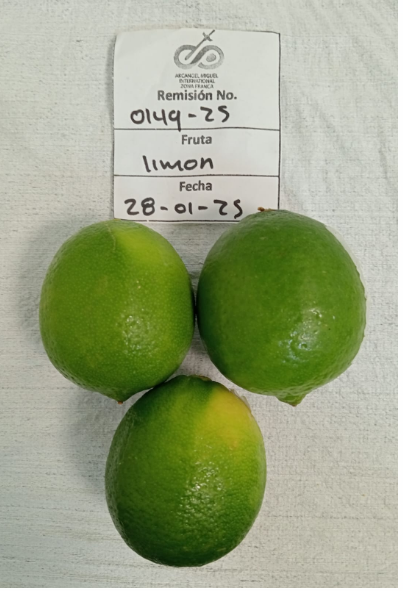 ARCANGEL MIGUEL
INTERNATIONAL
ZONA FRANCA
Remisión No.
0149-25
Fruta
limon
Fecha
28-01-25